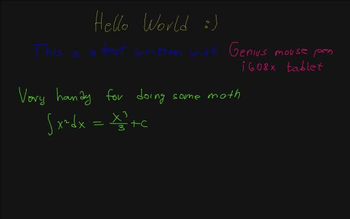 Hello World :)
This is a test written with Genius mouse pen
i608x tablet
Very handy for doing some math
∫x²dx = x³/3 + c